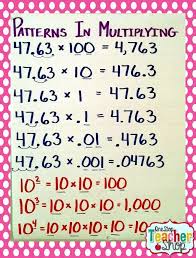 PATTERNS IN MULTIPLYING
47.63 × 100 = 4,763
47.63 × 10 = 476.3
47.63 × 1 = 47.63
47.63 × .1 = 4.763
47.63 × .01 = .4763
47.63 × .001 = .04763
10² = 10×10 = 100
10³ = 10×10×10 = 1,000
10⁴ = 10×10×10×10 = 10,000
One Stop
Teacher
Shop